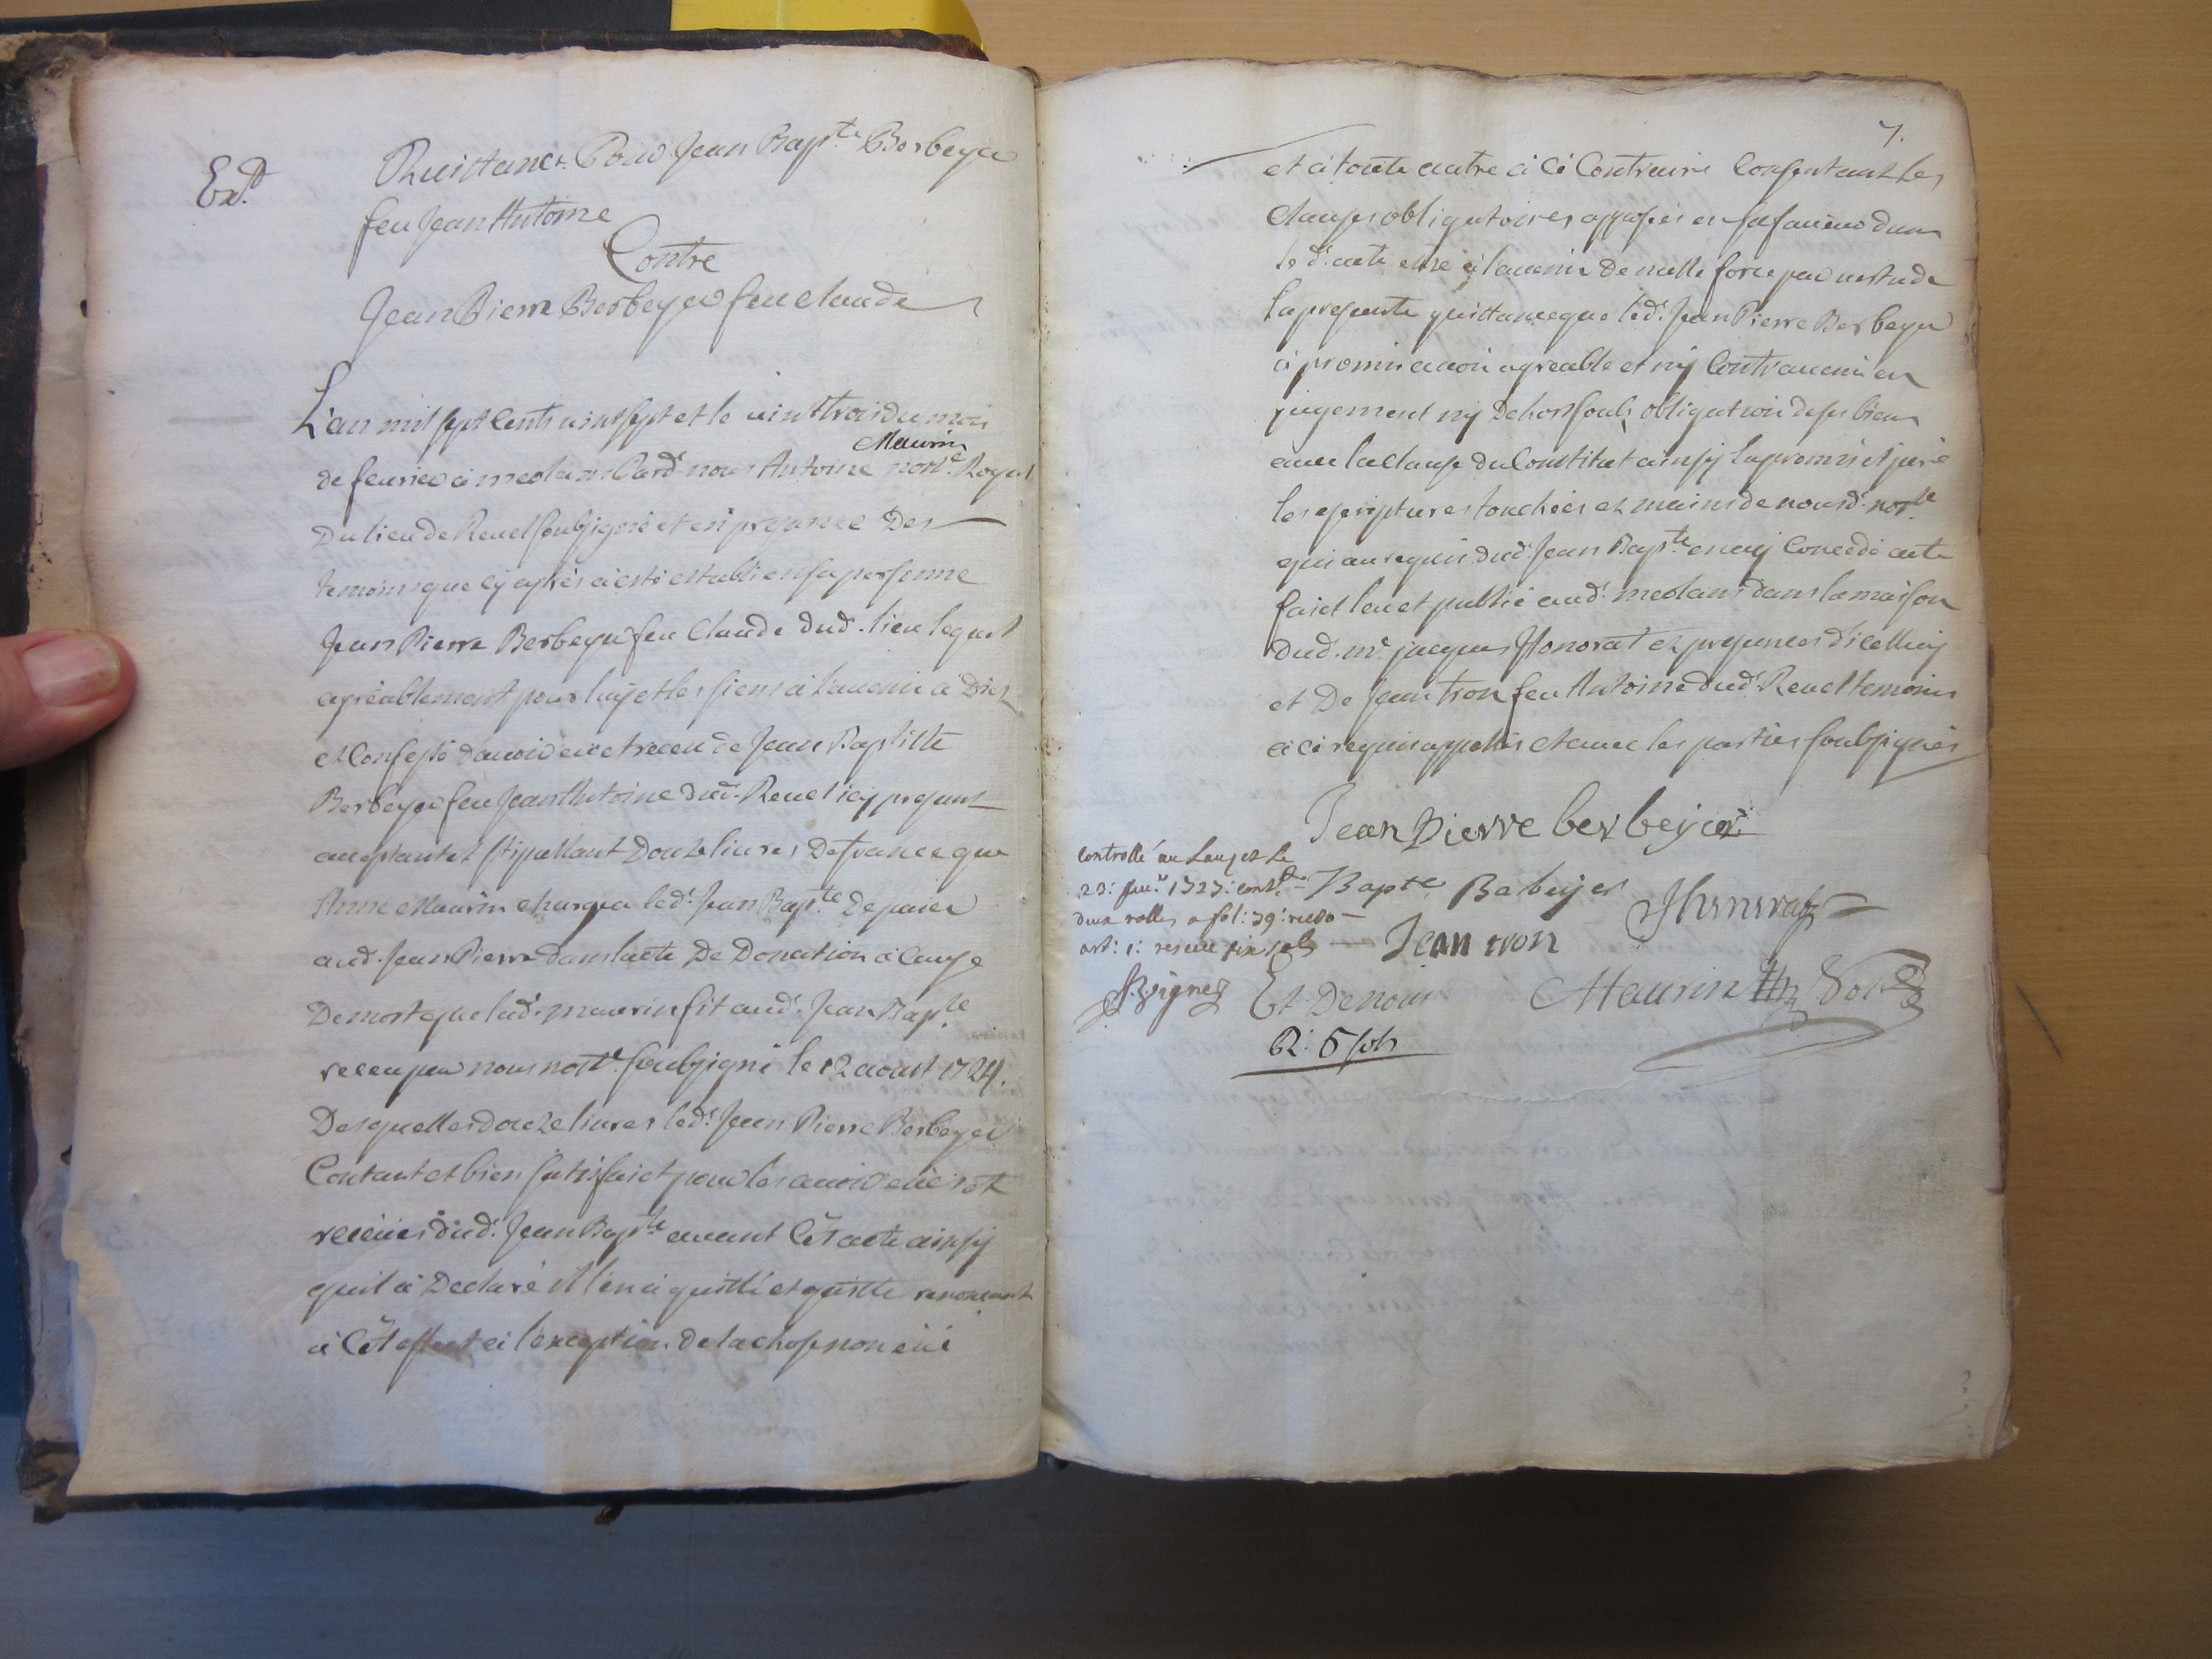 Ex.d
Quittance Pour Jean Bap.te Berbeyer
feu Jean Antoine
Contre
Jean Pierre Berbeyer feu Claude
L'an mil sept cents vint sept et le vint trois du mois
de feurier a meolans pard.t nous Antoine Maurin not.e Royal
Du lieu de Reuel soubsigné et en presence Des
temoins que cy apres a esté establi en sa personne
Jean Pierre Berbeyer feu Claude dud. lieu lequel
agréablement pour luy et les siens à l'auenir à Dict
et Confessé d'auoir eu et receu de Jean Baptiste
Berbeyer feu Jean Antoine dud. Reuel icy present
aceptant et stipullant Douze liures De france que
Anne Maurin chargea led.t Jean Bap.te De paier
aud. Jean Pierre dans l'acte De Donation à Cause
De mort que lad. maurin fit aud.t Jean Bap.te
receu par nous not.e soubsigné le 12 aoust 1724.
Desquelles douze liures led.t Jean Pierre Berbeyer
Contant et bien satisfaict pour les auoir eües et
receües dud.t Jean Bap.te auant Cét acte ainsy
quil à Declaré il l'en à quitté et quitte renonceant
à Cét effect à l'exception de la chose non eüe
7.
et à toute autre à ce Contraire Consentant les
clauses obligatoires apposées en sa faueur dans
le d.t acte estre à l'auenir De nulle force par vertu de
la presente quittance que led.t Jean Pierre Berbeyer
à promis auoir agreable et ny Contreuenir en
jugement ny Dehors soubs obligation de ses biens
auec la clause du Constitut ainsy la promis et juré
les escriptures touchées ez mains de nousd.t not.e
qui au requis dud.t Jean Bap.te en ay Concedé acte
faict leu et publié aud.t meolans dans la maison
dud. m.e jacques Honorat ez presences d'icelluy
et De Jean tron feu Antoine dud.t Reuel temoins
à ce requis appellés et auec les parties soubsignés
Jean Pierre berbeyer
Controllé au Lauzet le
23: feu.r 1727: cont.t
deux rolles a fol: 39: recto
art: 1: receu six sols
Bapte Babeyer
JHonorat
Jean tron
Et De nous
Maurin Not.e
R: 5 sols